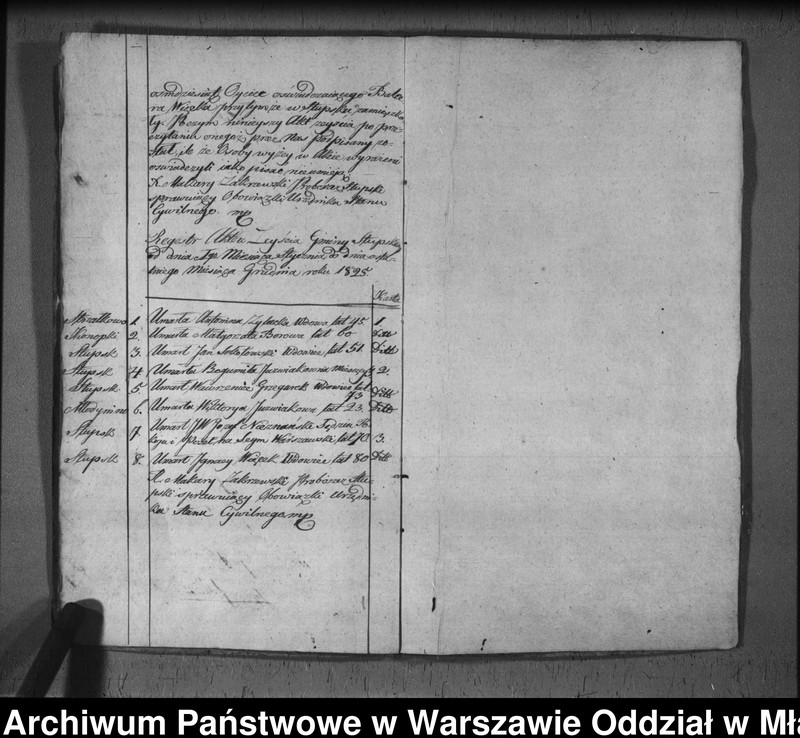 ośmdziesiąt Oycice oświadczaiącego
w Słupsku
ty. Poczym ninieyszy Akt zeyścia po prze
czytaniu onegoż przez Nas podpisany zo
stał, ile że Osoby wyżey w Akcie wyrażeni
oświadczyli iako pisać nieumieją
X. Makary Zakrzewski Proboszcz Słupski
sprawuiący Obowiązki Urzędnika Stanu
Cywilnego mp
Regestr Aktów Zeyścia Gminy Słupsk
od dnia 1go Miesiąca Stycznia do dnia osta-
tniego Miesiąca Grudnia roku 1825
Karta
Strzałkowo 1. Umarła Antonina Wdowa lat 45. 1
Konopki 2. Umarła Małgorzata Borowa lat 60 Ditt
Słupsk 3. Umarł Jan Wdowiec, lat 51. Ditt
Słupsk 4. Umarła Bogumiła Juzwiakowna 2.
Słupsk 5. Umarł Wawrzeniec Grzegorek Wdowiec lat
73 Ditt
Młodynin 6. Umarła Wiktorya Juzwiakowa lat 23. Ditt
Umarł JW Jozef Sędzia Po
Słupsk 7. koju i Poseł na Seym Warszawski lat 70 3.
Słupsk 8. Umarł Ignacy Wdowiec lat 80 Ditt
X. Makary Zakrzewski Proboszcz Słu-
pski sprawuiący Obowiązki Urzędni-
ka Stanu Cywilnego mp
Archiwum Państwowe w Warszawie Oddział w Mła